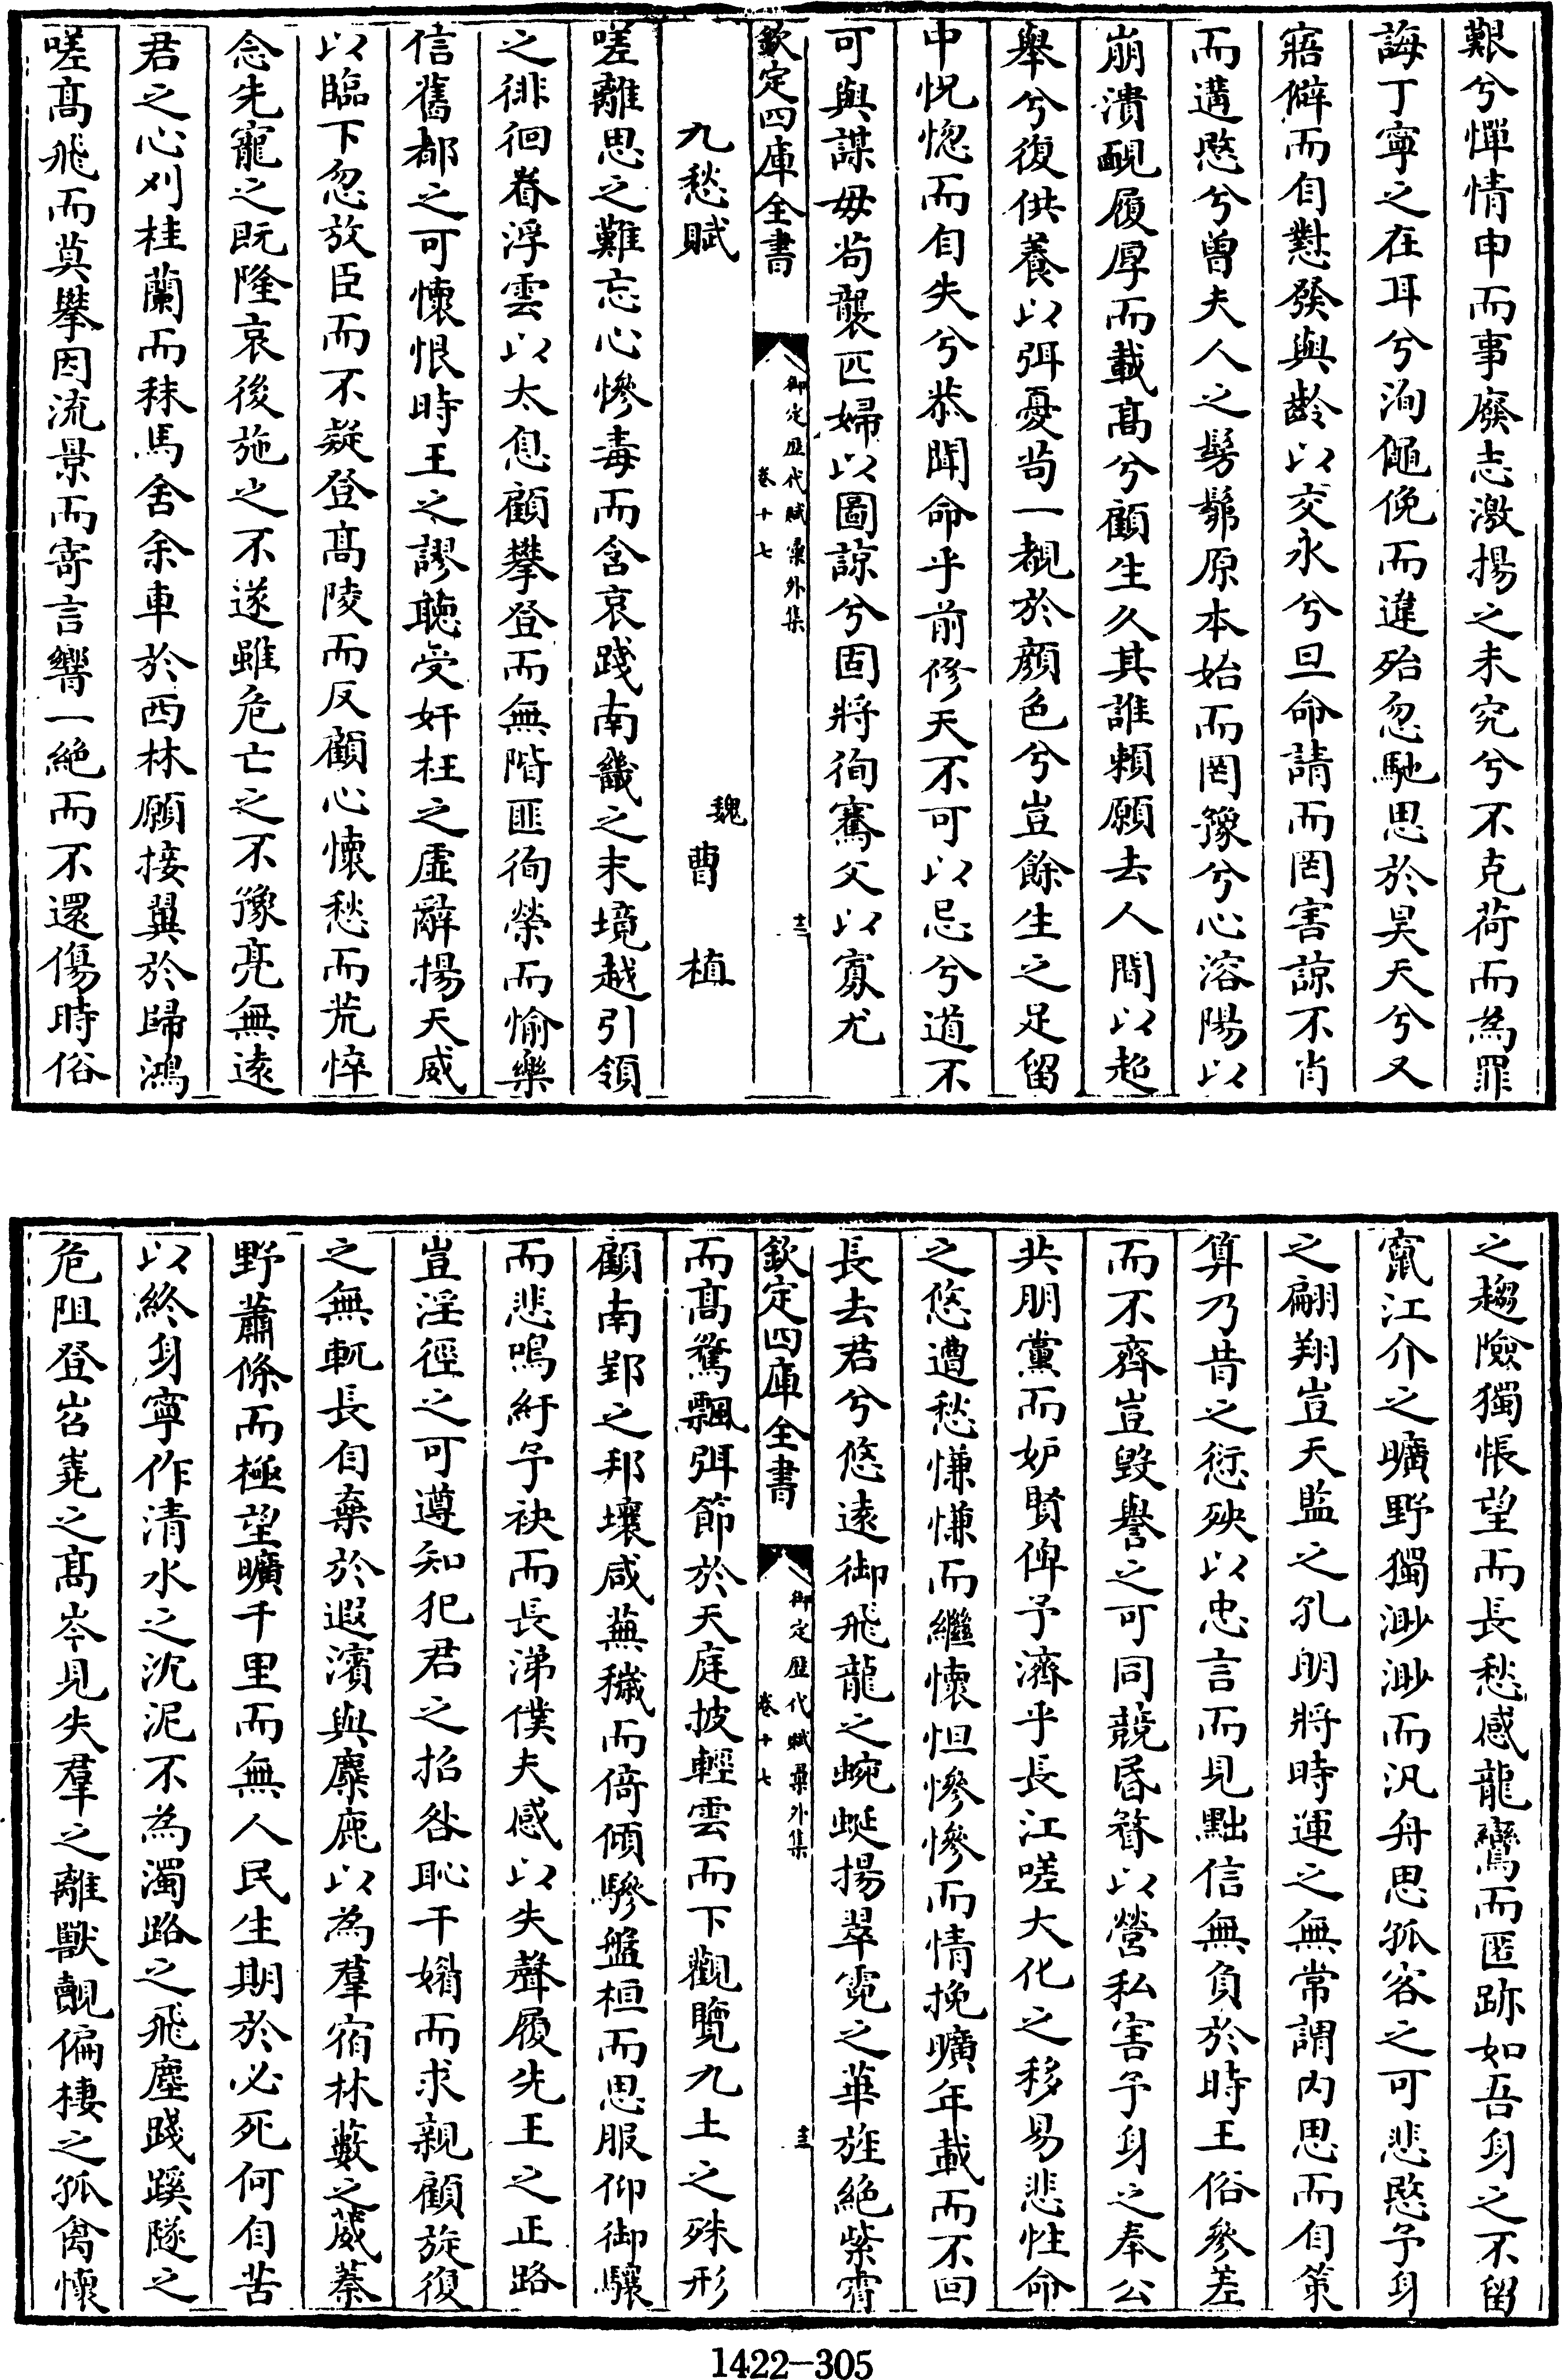 艱兮憚情申而事廢志激揚之未究兮不克荷而為罪
誨丁寧之在耳兮洵僶俛而違殆忽馳思於昊天兮又
寤擗而自懟發與齡以交永兮旦命請而罔害諒不肖
而遘愍兮曾夫人之髣髴原本始而罔豫兮心溶陽以
崩潰靦履厚而載髙兮顧生久其誰頼願去人間以超
舉兮復供養以弭憂茍一覩於顔色兮豈餘生之足留
中怳惚而自失兮恭聞命乎前修天不可以忌兮道不
可與謀毋茍襲匹婦以圖諒兮固將徇騫父以寡尤
欽定四庫全書
御定歴代賦彙外集
卷十七
十二
九愁賦
魏
曹植
嗟離思之難忘心慘毒而含哀踐南畿之末境越引領
之徘徊眷浮雲以太息顧攀登而無階匪徇榮而愉樂
信舊都之可懷恨時王之謬聽受奸枉之虚辭揚天威
以臨下忽放臣而不疑登髙陵而反顧心懷愁而荒悴
念先寵之既隆哀後施之不遂雖危亡之不豫亮無逺
君之心刈桂蘭而秣馬舍余車於西林願接翼於歸鴻
嗟髙飛而莫攀因流景而寄言響一絶而不還傷時俗
之趨險獨悵望而長愁感龍鸞而匿跡如吾身之不留
竄江介之曠野獨渺渺而汎舟思孤客之可悲愍予身
之翩翔豈天監之孔明將時運之無常謂内思而自策
算乃昔之愆殃以忠言而見黜信無負於時王俗參差
而不齊豈毁譽之可同競昏瞀以營私害予身之奉公
共朋黨而妒賢俾予濟乎長江嗟大化之移易悲性命
之悠遭愁慊慊而繼懷怛慘慘而情挽曠年載而不回
長去君兮悠逺御飛龍之蜿蜒揚翠霓之華旌絶紫霄
欽定四庫全書
御定歴代賦彙外集
卷十七
十三
而髙騖飄弭節於天庭披輕雲而下觀覽九土之殊形
顧南郢之邦壤咸蕪穢而倚傾驂盤桓而思服仰御驤
而悲鳴紆予袂而長涕僕夫感以失聲履先王之正路
豈淫徑之可遵知犯君之招咎恥干媚而求親顧旋復
之無軏長自棄於遐濱與麋鹿以為羣宿林藪之葳蓁
野蕭條而極望曠千里而無人民生期於必死何自苦
以終身寧作清水之沈泥不為濁路之飛塵踐蹊隧之
危阻登岧嶤之髙岑見失羣之離獸覿偏棲之孤禽懷
1422-305